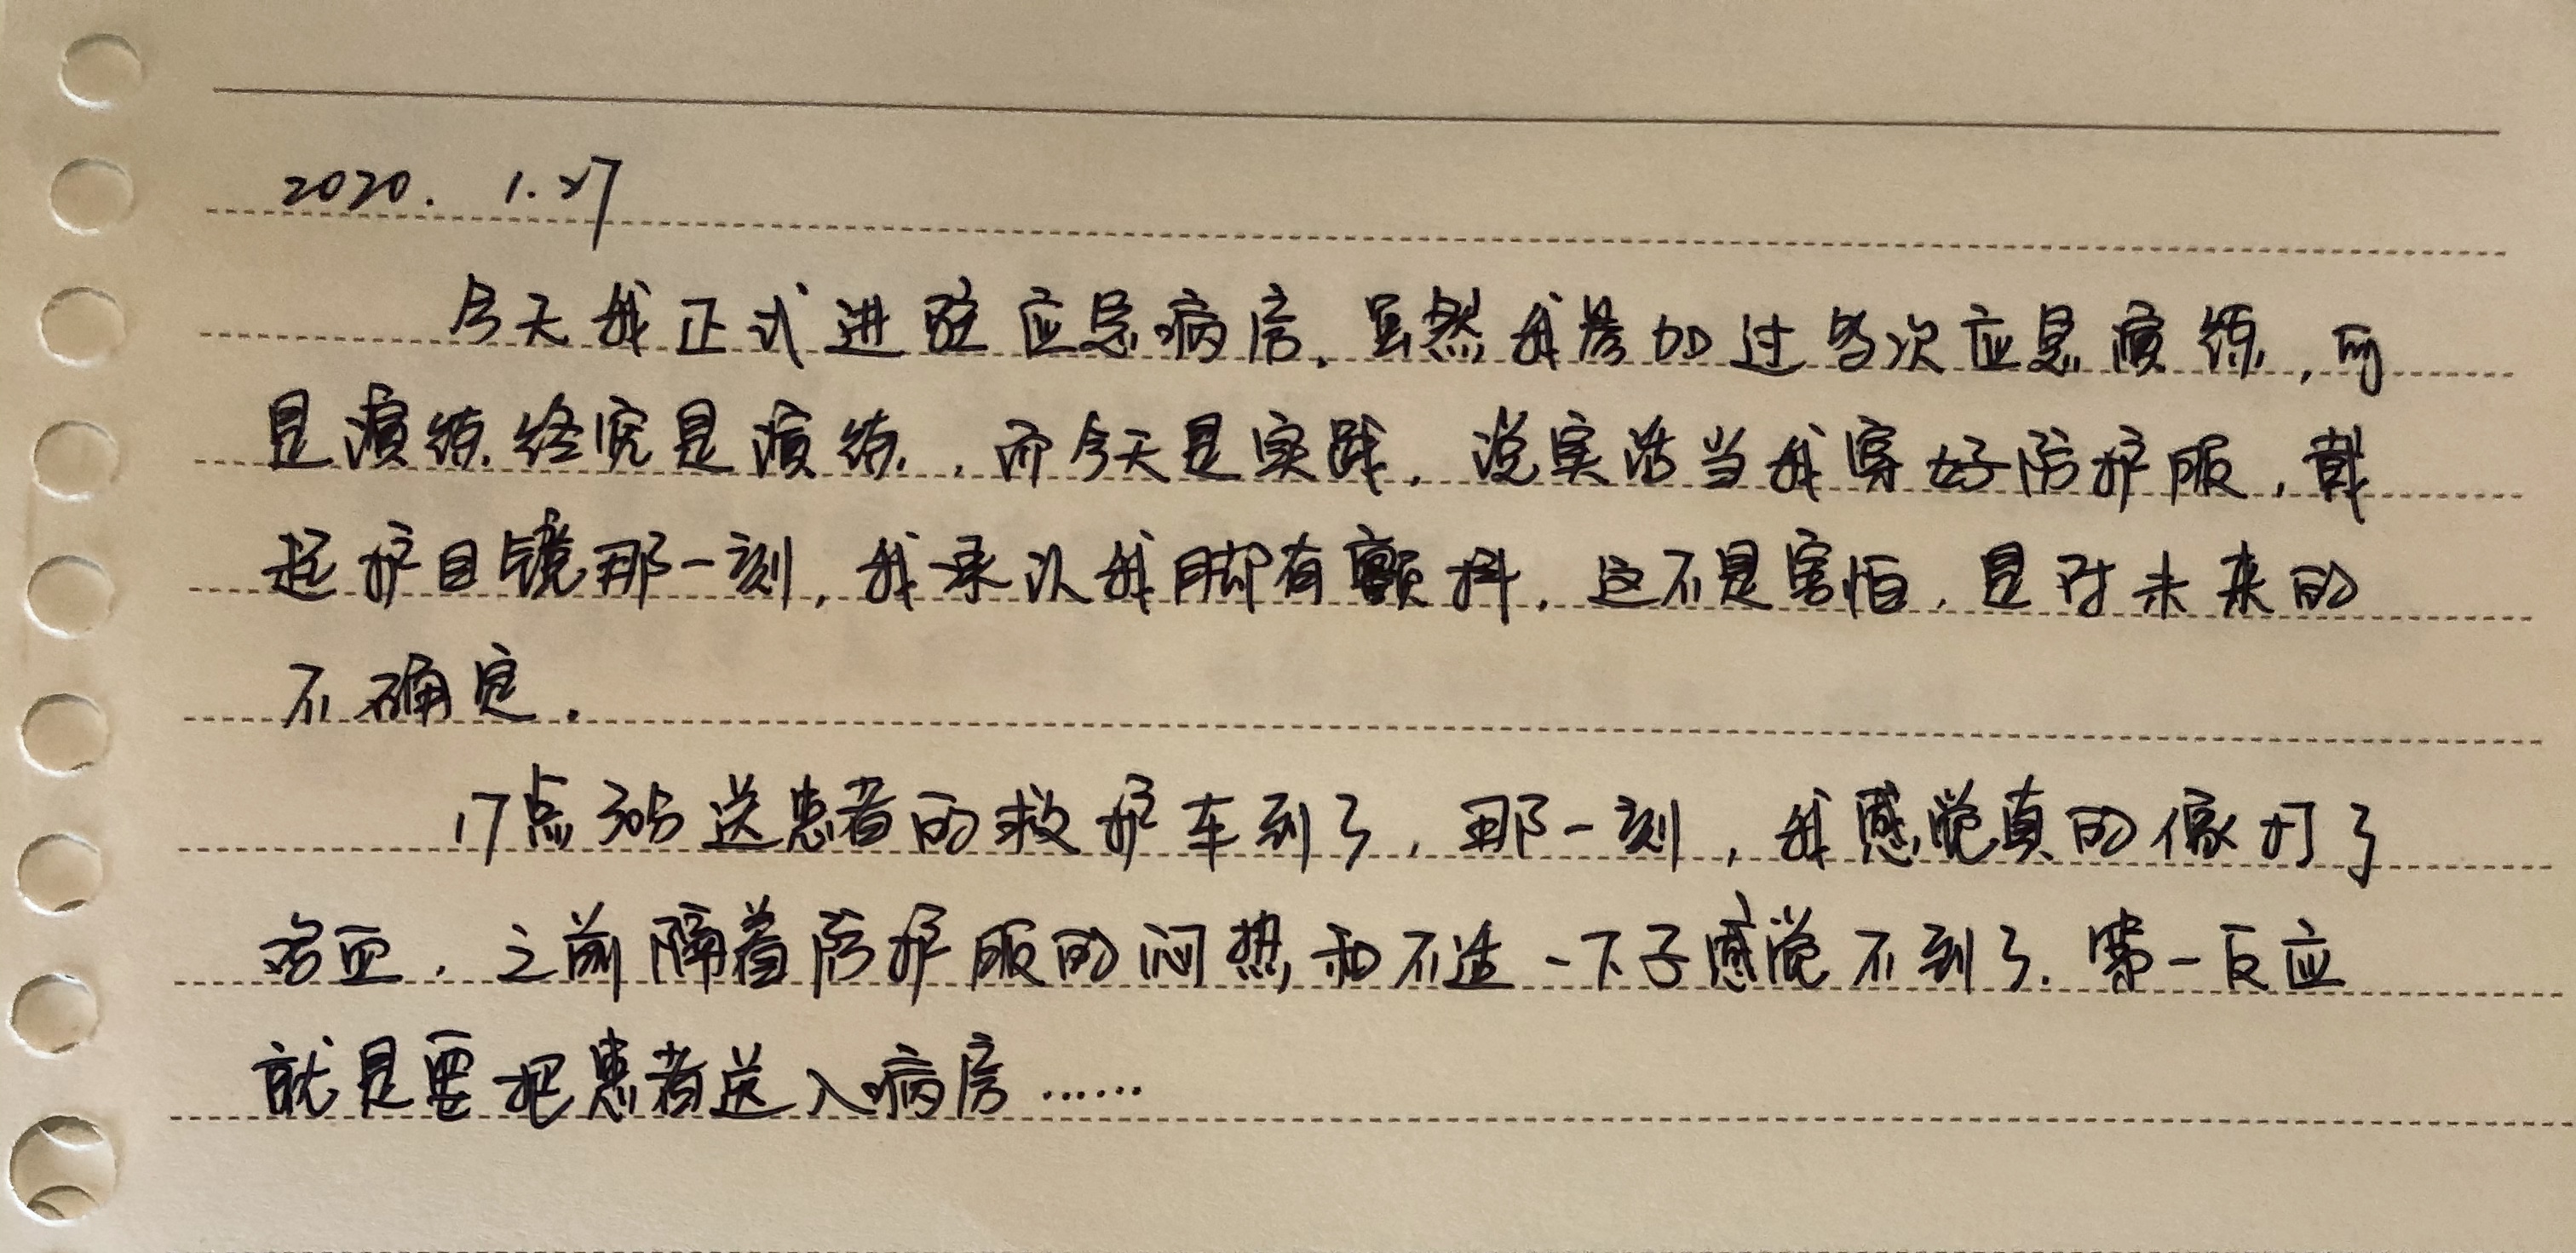 2020. 1.27
今天我正式进驻应急病房.虽然我参加过多次应急演练,可
是演练终究是演练.,而今天是实践.说实话当我穿好防护服,戴
起护目镜那一刻,我承认我脚有颤抖.这不是害怕,是对未来的
不确定.
17点30分送患者的救护车到了,那一刻,我感觉真的像打了
鸡血.之前隔着防护服的闷热和不适一下子感觉不到了.第一反应
就是要把患者送入病房……